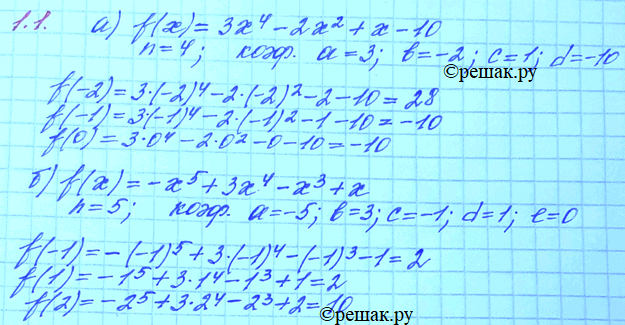 1.1. а) f(x) = 3x⁴ - 2x² + x - 10
n = 4; коэф. a = 3; b = -2; c = 1; d = -10
©решак.ру
f(-2) = 3·(-2)⁴ - 2·(-2)² - 2 - 10 = 28
f(-1) = 3·(-1)⁴ - 2·(-1)² - 1 - 10 = -10
f(0) = 3·0⁴ - 2·0² - 0 - 10 = -10
б) f(x) = -x⁵ + 3x⁴ - x³ + x
n = 5; коэф. a = -5; b = 3; c = -1; d = 1; e = 0
f(-1) = -(-1)⁵ + 3·(-1)⁴ - (-1)³ - 1 = 2
f(1) = -1⁵ + 3·1⁴ - 1³ + 1 = 2
f(2) = -2⁵ + 3·2⁴ - 2³ + 2 = 10
©решак.ру